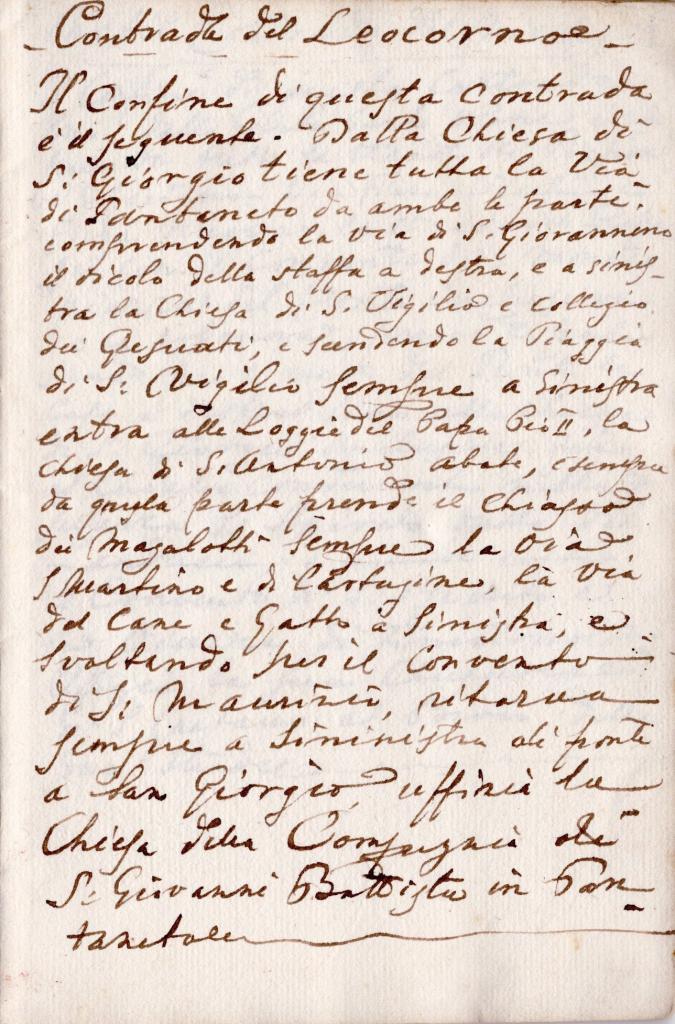 Contrada del Leocorno
Il Confine di questa Contrada
è il seguente. Dalla Chiesa di
S: Giorgio tiene tutta la Via
di Pantaneto da ambe le parti,
comprendendo la via di S. Giovannino
il vicolo della staffa a destra, e a sinis-
tra la Chiesa di S. Vigilio e collegio
dei Gesuati, e scendendo la Piaggia
di S: Vigilio sempre a Sinistra
entra alle Loggie del Papa Pio II, la
chiesa di S. Antonio Abate, e sempre
da quela parte prende il Chiasso
dei Magalotti sempre la via
S Martino e di Cartagine, la via
del Cane e Gatto a Sinistra, e
svoltando per il Convento
di S: Maurizio, ritorna
sempre a Sininistra di fronte
a San Giorgio, uffizia la
Chiesa della Compagnia di
S: Giovanni Battista in Pan-
taneto